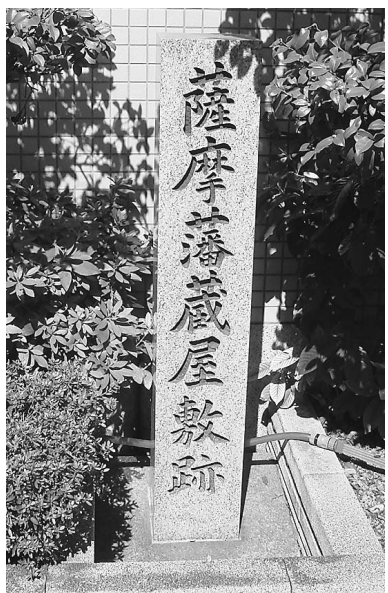 薩摩藩蔵屋敷跡